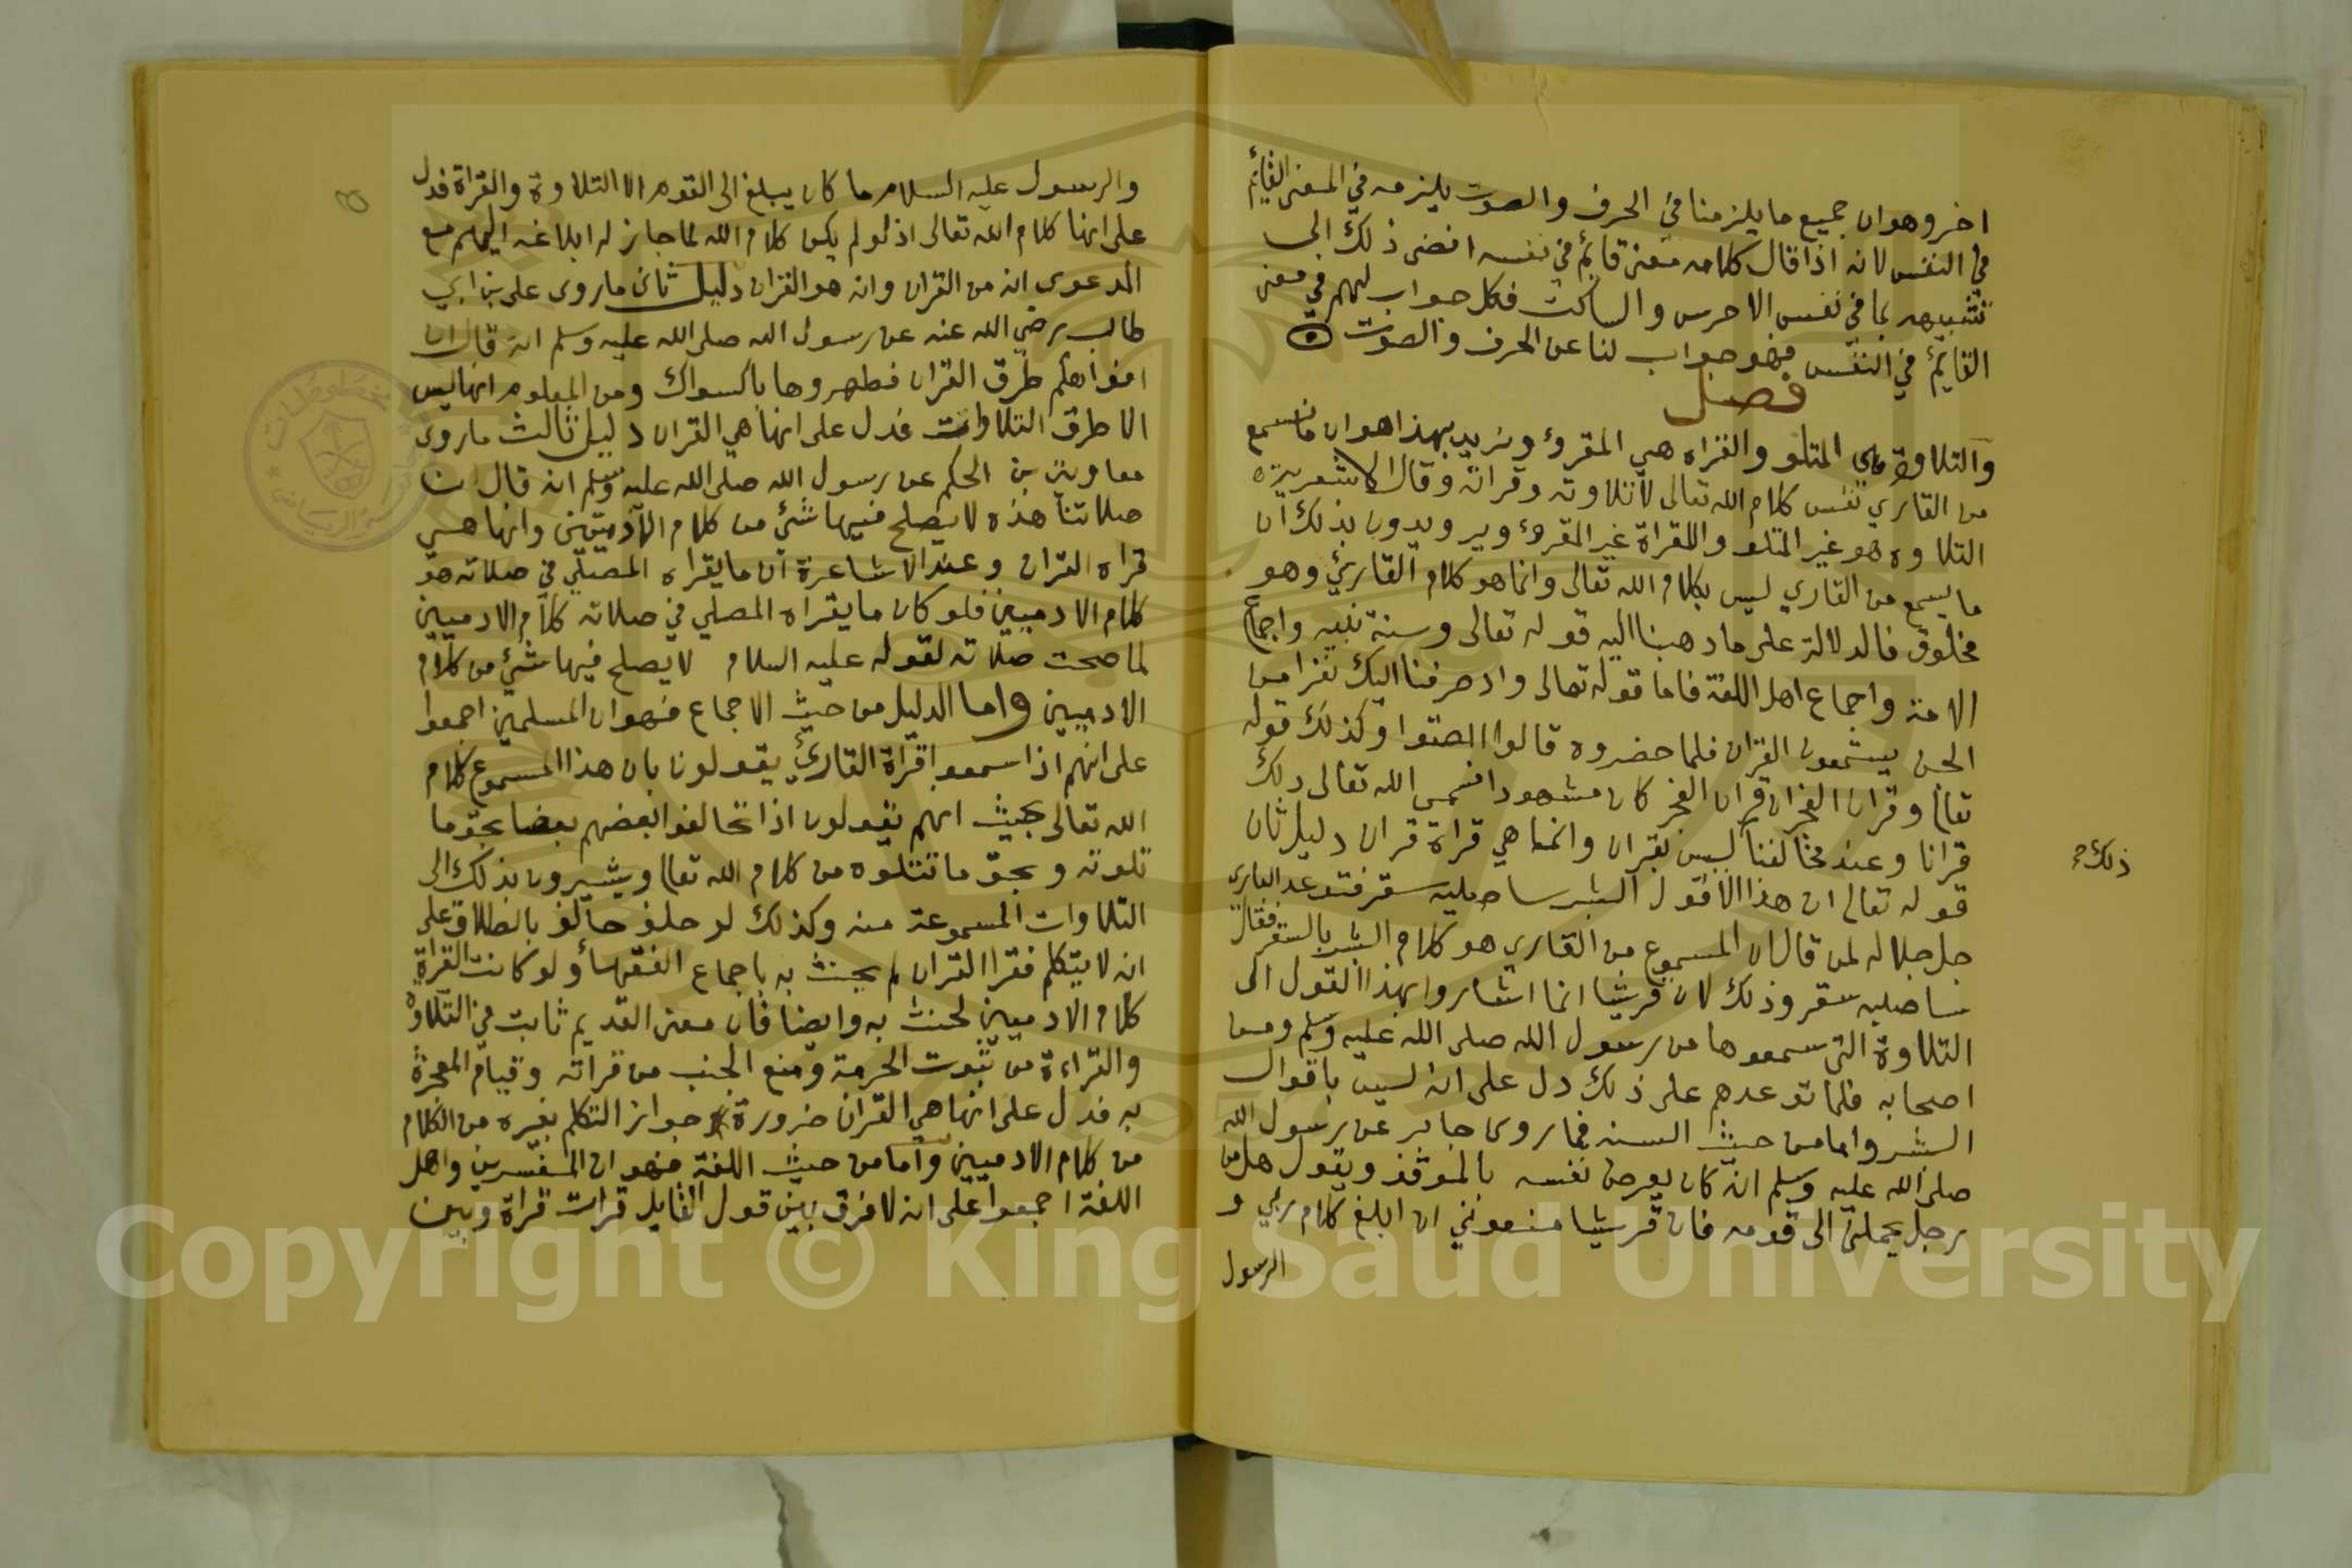 اخر وهو ان جميع ما يلزمنا في الحرف والصوت يلزمه في المعنى القايم
في النفس لانه اذا قال كلامه معنى قايم في نفسه افضى ذلك الى
تشبيهه بما في نفس الاخرس والساكت فكل جواب لهم في معنى
القايم في النفس فهو جواب لنا عن الحرف والصوت
فصل
والتلاوة هي المتلو والقراه هي المقروء ونريد بهذا هو ان ما نسمع
من القاري نفس كلام الله تعالى لا تلاوته وقرائه وقال الاشعرية
التلاوه هو غير المتلو والقراة غير المقروء ويريدون بذلك ان
ما يسمع من القاري ليس بكلام الله تعالى وانما هو كلام القاري وهو
مخلوق فالدلالة على ما ذهبنا اليه قوله تعالى وسنة نبيه واجماع
الامة واجماع اهل اللغة فاما قوله تعالى واذ صرفنا اليك نفرا من
الجن يستمعون القران فلما حضروه قالوا انصتوا وكذلك قوله
تعالى وقران الفجر ان قران الفجر كان مشهودا فسمى الله تعالى ذلك
قرانا وعند مخالفنا ليس بقران وانما هي قراة قران دليل ثان
ذلك
قوله تعالى ان هذا الا قول البشر ساصليه سقر فتوعد الباري
جل جلاله لمن قال ان المسموع من القاري هو كلام البشر بالسقر فقال
ساصليه سقر وذلك لان قريشا انما اشاروا بهذا القول الى
التلاوة التي سمعوها من رسول الله صلى الله عليه وسلم ومن
اصحابه فلما توعدهم على ذلك دل على انه ليس باقوال
البشر واما من حيث السنه فما روى جابر عن رسول الله
صلى الله عليه وسلم انه كان يعرض نفسه بالموقف ويقول هل من
رجل يحملني الى قومه فان قريشا منعوني ان ابلغ كلام ربي و
الرسول
والرسول عليه السلام ما كان يبلغ الى القوم الا التلاوة والقراة فدل
على انها كلام الله تعالى اذ لو لم يكن كلام الله لما جاز له ابلاغه اليهم مع
الدعوى انه من القران وانه هو القران دليل ثان ما روى علي بن ابي
طالب رضي الله عنه عن رسول الله صلى الله عليه وسلم انه قال ان
افواهكم طرق القران فطهروها باكسواك ومن المعلوم انها ليس
الا طرق التلاوات فدل على انها هي القران دليل ثالث ما روى
معاوية بن الحكم عن رسول الله صلى الله عليه وسلم انه قال ان
صلاتنا هذه لا يصلح فيها شئ من كلام الآدميين وانها هي
قراه القران وعند الاشاعرة ان ما يقراه المصلي في صلاته هو
كلام الادميين فلو كان ما يقراه المصلي في صلاته كلام الادميين
لما صحت صلاته لقوله عليه السلام لا يصلح فيها شئ من كلام
الادميين واما الدليل من حيث الاجماع فهو ان المسلمين اجمعوا
على انهم اذا سمعوا قراة القارئ يقولون بان هذا المسموع كلام
الله تعالى بحيث انهم يقولون اذا تحالفوا بعضهم بعضا بحق ما
تلوته وبحق ما تتلوه من كلام الله تعالى ويشيرون بذلك الى
التلاوات المسموعة منه وكذلك لو حلف حالف بالطلاق على
انه لا يتكلم فقرا القران لم يحنث به باجماع الفقهاء ولو كانت القراة
كلام الادميين لحنث به وايضا فان معنى القديم ثابت في التلاوة
والقراءة من ثبوت الحرمة ومنع الجنب من قراته وقيام المعجزة
به فدل على انها هي القران ضرورة جواز التكلم بغيره من الكلام
من كلام الادميين واما من حيث اللغة فهو ان المفسرين واهل
اللغة اجمعوا على انه لا فرق بين قول القايل قرات قراة وبين
Copyright © King Saud University